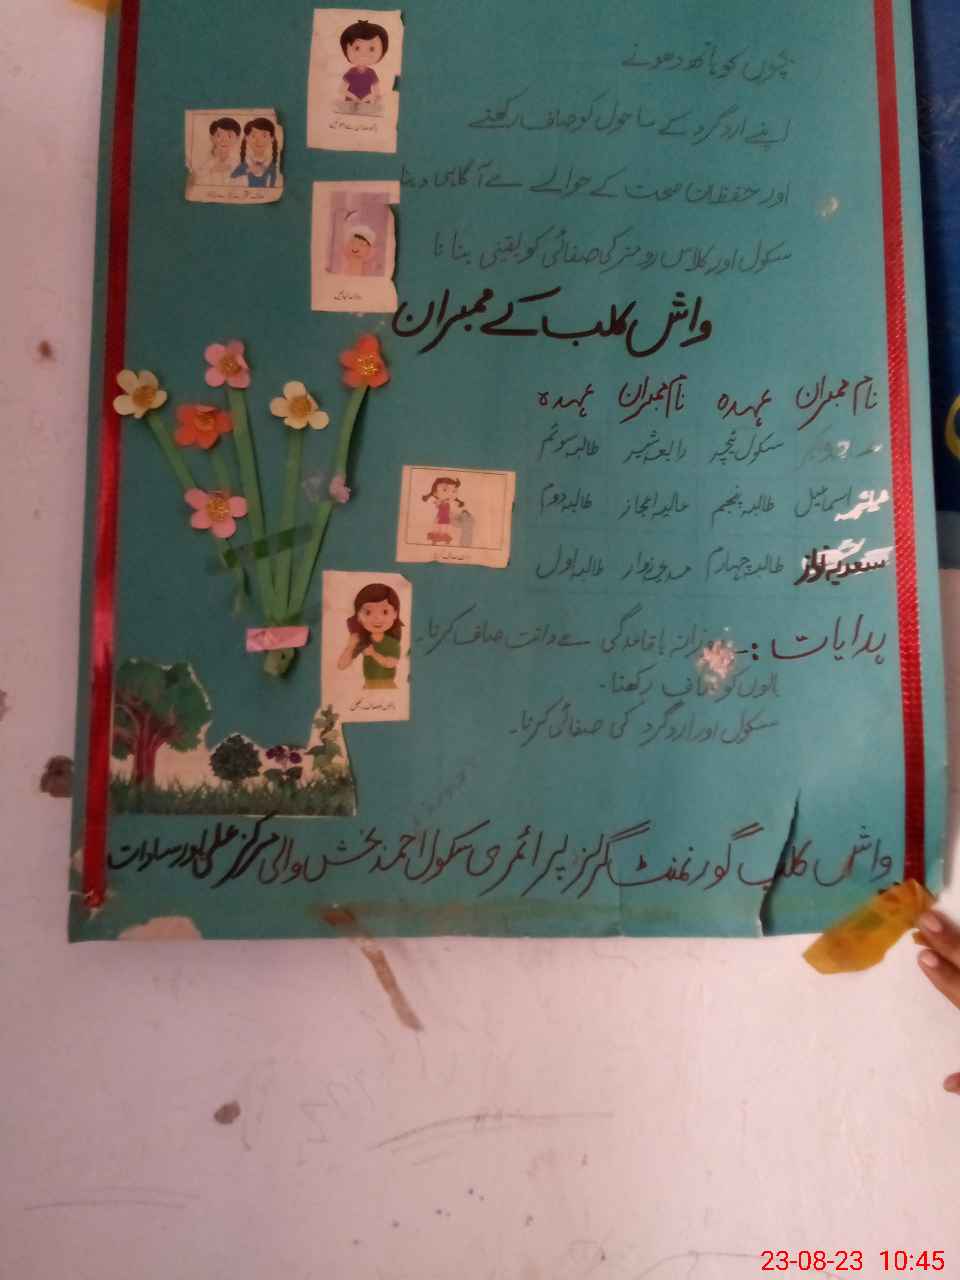 بچوں کو ہاتھ دھونے
اپنے ارد گرد کے ماحول کو صاف رکھنے
اور حفظان صحت کے حوالے سے آگاہی دینا
سکول اور کلاس رومز کی صفائی کو یقینی بنانا
واش کلب کے ممبران
نام ممبران عہدہ نام ممبران عہدہ
سکول ٹیچر رابعہ طالبہ سوئم
اسماعیل طالبہ پنجم عالیہ اعجاز طالبہ دوم
سعدیہ نواز طالبہ چہارم طالبہ اول
ہدایات :۔ روزانہ باقاعدگی سے دانت صاف کرنا۔
بالوں کو صاف رکھنا۔
سکول اور ارد گرد کی صفائی کرنا۔
واش کلب گورنمنٹ گرلز پرائمری سکول احمد بخش والی مرکز علی پور سادات
23-08-23 10:45